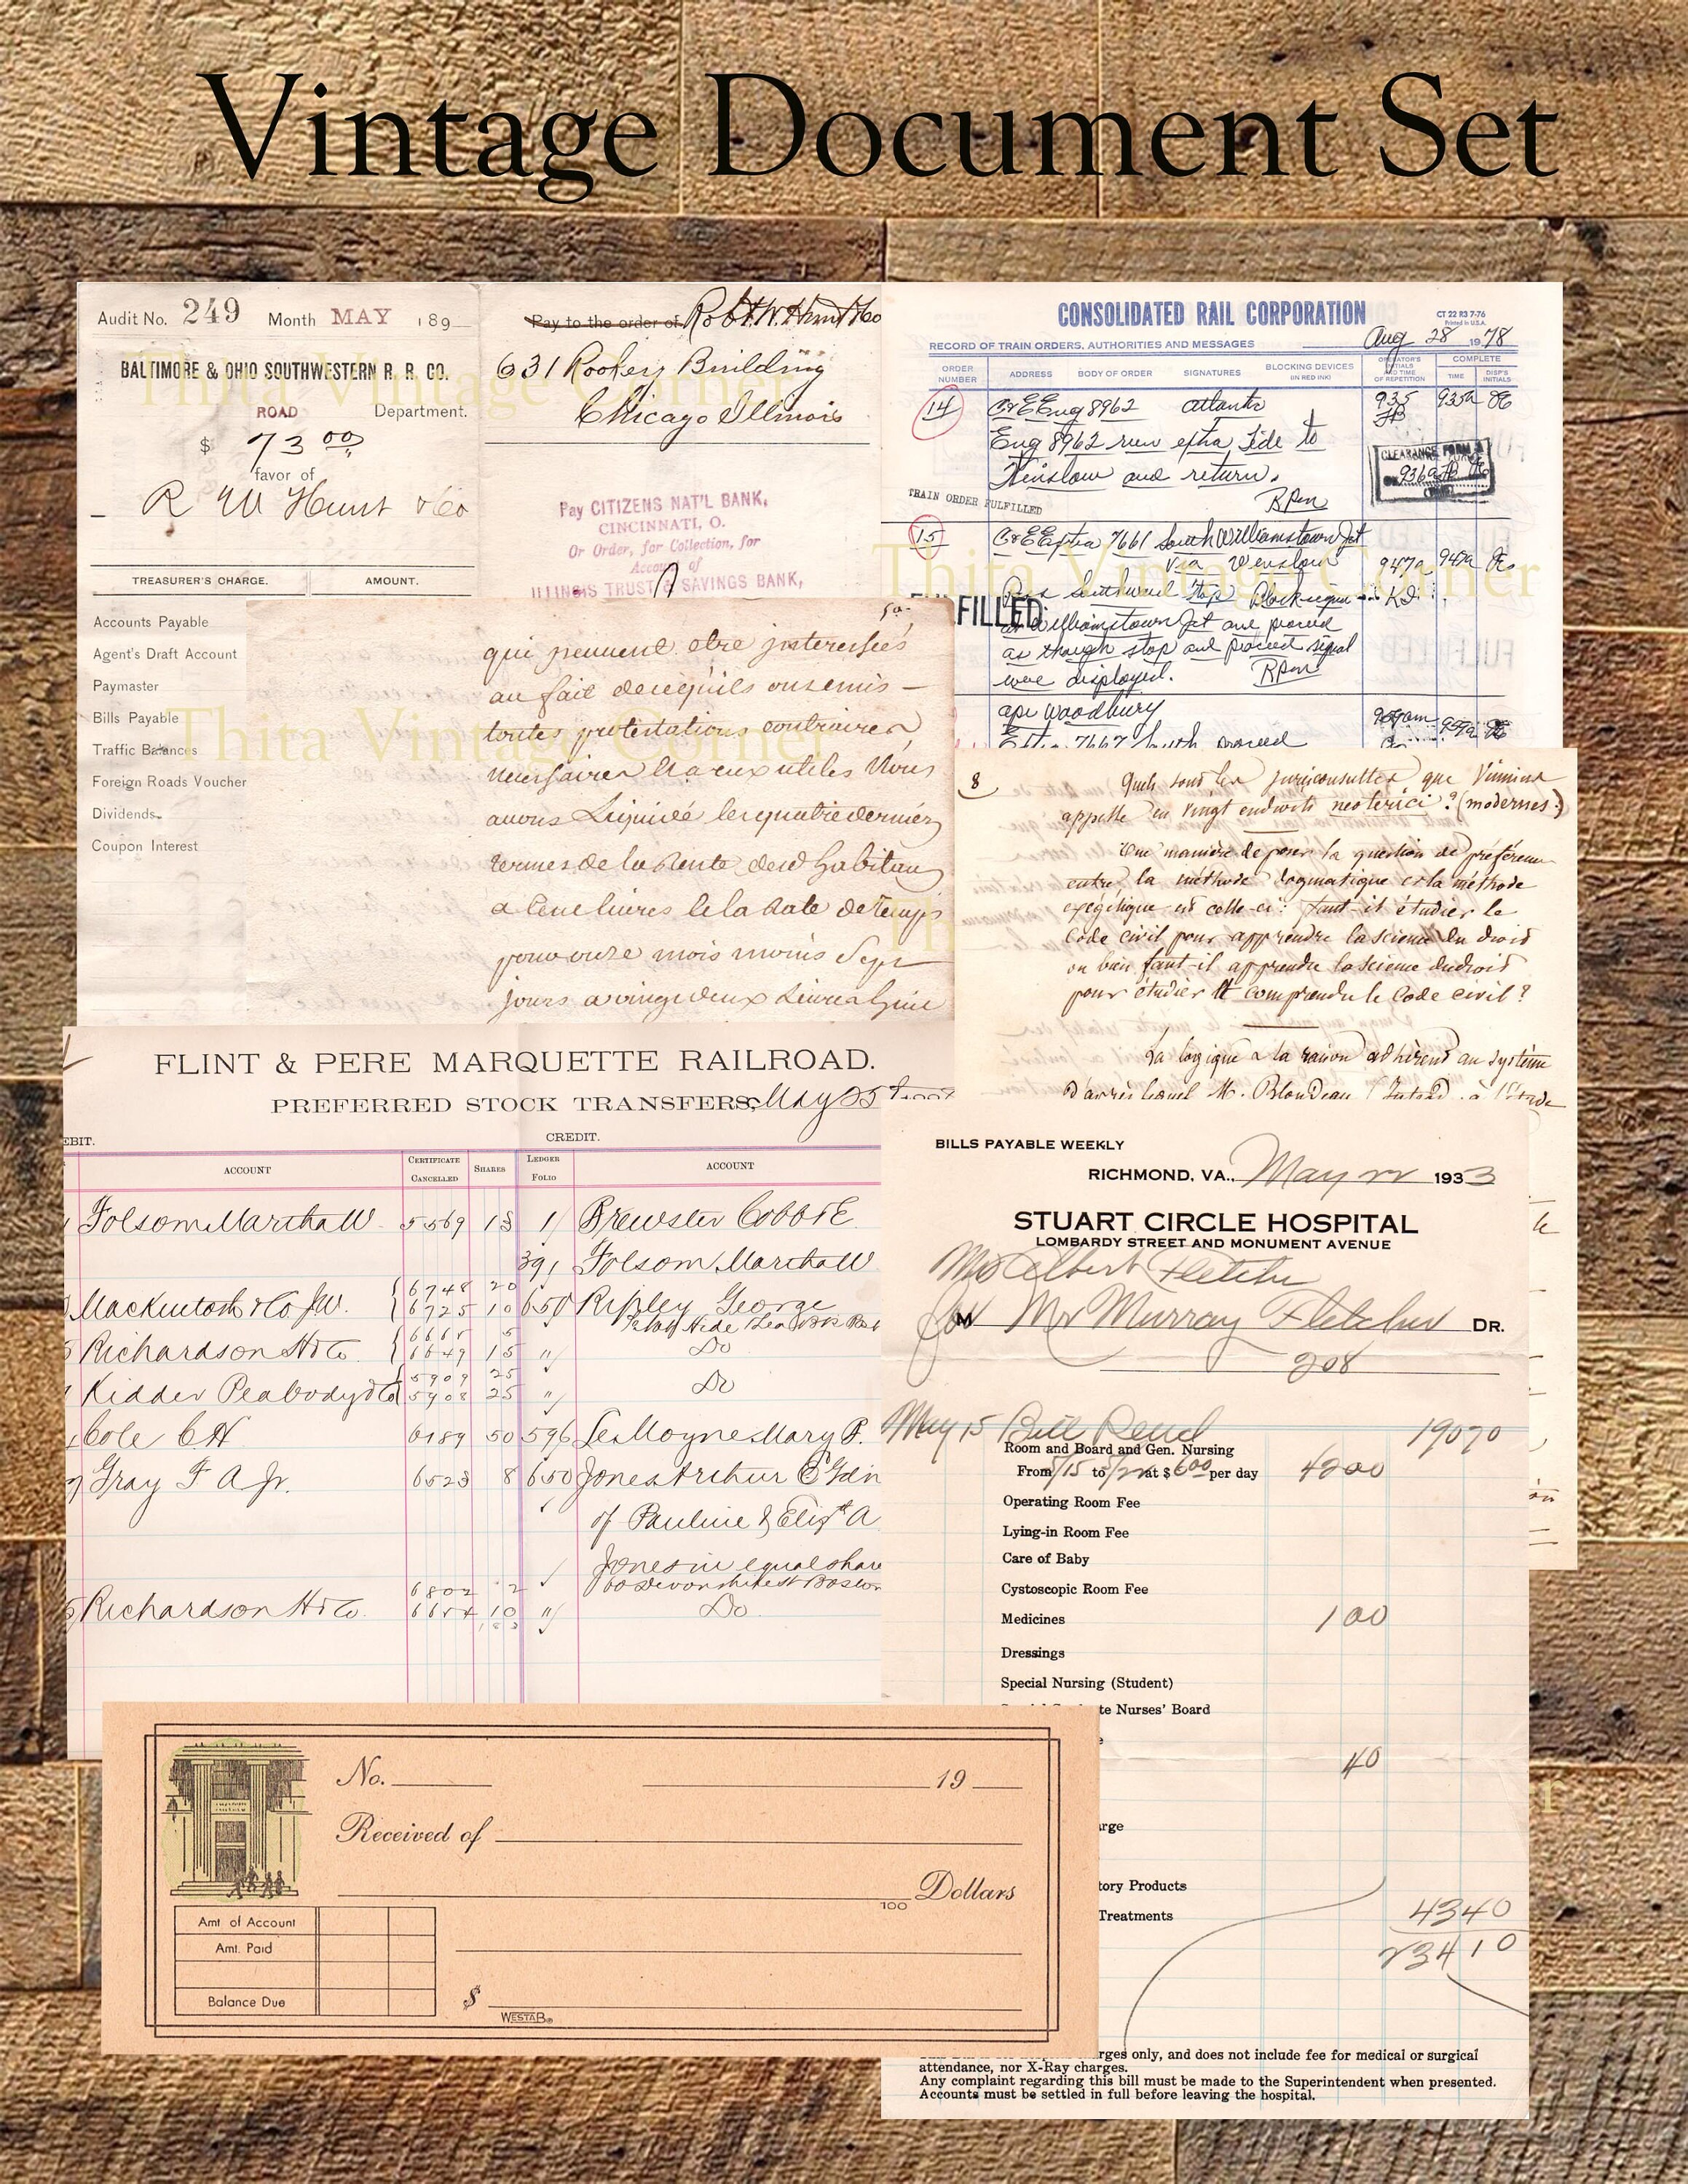 Vintage Document Set
Audit No. 249 Month MAY 189
BALTIMORE & OHIO SOUTHWESTERN R. R. CO.
ROAD Department.
$ 73 00
favor of
R W Hunt & Co
TREASURER'S CHARGE. AMOUNT.
Accounts Payable
Agent's Draft Account
Paymaster
Bills Payable
Traffic Balances
Foreign Roads Voucher
Dividends
Coupon Interest
Pay to the order of Robt. W. Hunt & Co
631 Rookery Building
Chicago Illinois
Pay CITIZENS NAT'L BANK,
CINCINNATI, O.
Or Order, for Collection, for
Account of
ILLINOIS TRUST & SAVINGS BANK,
CONSOLIDATED RAIL CORPORATION
CT 22 R3 7-76
Printed in U.S.A.
RECORD OF TRAIN ORDERS, AUTHORITIES AND MESSAGES Aug 28 1978
ORDER NUMBER ADDRESS BODY OF ORDER SIGNATURES BLOCKING DEVICES (IN RED INK) OPERATOR'S INITIALS AND TIME OF REPETITION COMPLETE TIME DISP'S INITIALS
14 C&E Eng 8962 Atlantic 935 935a
Eng 8962 run extra Tide to
Winslow and return.
CLEARANCE FORM A
TRAIN ORDER FULFILLED
15 C&E Extra 7661 South Williamstown Jct
via Winslow 947a 947a
FILLED
at Williamstown Jct and proceed
as though stop and proceed signal
were displayed.
Woodbury
7667 South proceed
Thita Vintage Corner
Thita Vintage Corner
Thita Vintage Corner
qui peuvent etre interessées
au fait
toutes protestations contraires
necessaires utiles Nous
avons Liquidé les quatre derniers
termes de la Rente
a livres de la date de temps
pour onze mois moins Sept
jours a vingt deux Livres
8
Quels sont les jurisconsultes que Vinnius
appelle en vingt endroits neoterici? (modernes.)
Une manière de poser la question de préférence
entre la méthode dogmatique et la méthode
exégétique est celle-ci: faut-il étudier le
Code civil pour apprendre la science du droit
ou bien faut-il apprendre la science du droit
pour étudier et comprendre le Code civil?
La logique a la raison adhèrent au système
d'après lequel M. Blondeau
FLINT & PERE MARQUETTE RAILROAD.
PREFERRED STOCK TRANSFERS, May 25
EBIT. CREDIT.
ACCOUNT CERTIFICATE CANCELLED SHARES LEDGER FOLIO ACCOUNT
Folsom Martha W 5569 13 1 Brewster Cobb & E
391 Folsom Martha W
6748 20
Mackintosh & Co J W. 6725 10 650 Ripley George
5
Richardson H & Co 6649 15 " Do
5909 25
Kidder Peabody & Co 5908 25 " Do
Cole C H 6189 50 596 LeMoyne Mary P.
Gray F A Jr. 6523 8 650 Jones Arthur E Gdn
of Pauline & Elizth A
Jones in equal share
60 Devonshire st Boston
6802 2
Richardson H & Co. 10 " Do
BILLS PAYABLE WEEKLY
RICHMOND, VA., May 22 1933
STUART CIRCLE HOSPITAL
LOMBARDY STREET AND MONUMENT AVENUE
Mr Albert Fletcher
for M Mr Murray Fletcher DR.
208
May 15 Bill Rend 190 70
Room and Board and Gen. Nursing
From 5/15 to 5/22 at $ 6.00 per day 42 00
Operating Room Fee
Lying-in Room Fee
Care of Baby
Cystoscopic Room Fee
Medicines 1 00
Dressings
Special Nursing (Student)
te Nurses' Board
40
arge
tory Products
Treatments 43 40
234 10
rges only, and does not include fee for medical or surgical
attendance, nor X-Ray charges.
Any complaint regarding this bill must be made to the Superintendent when presented.
Accounts must be settled in full before leaving the hospital.
No. 19
Received of
100 Dollars
Amt of Account
Amt. Paid
Balance Due
$
WESTAB